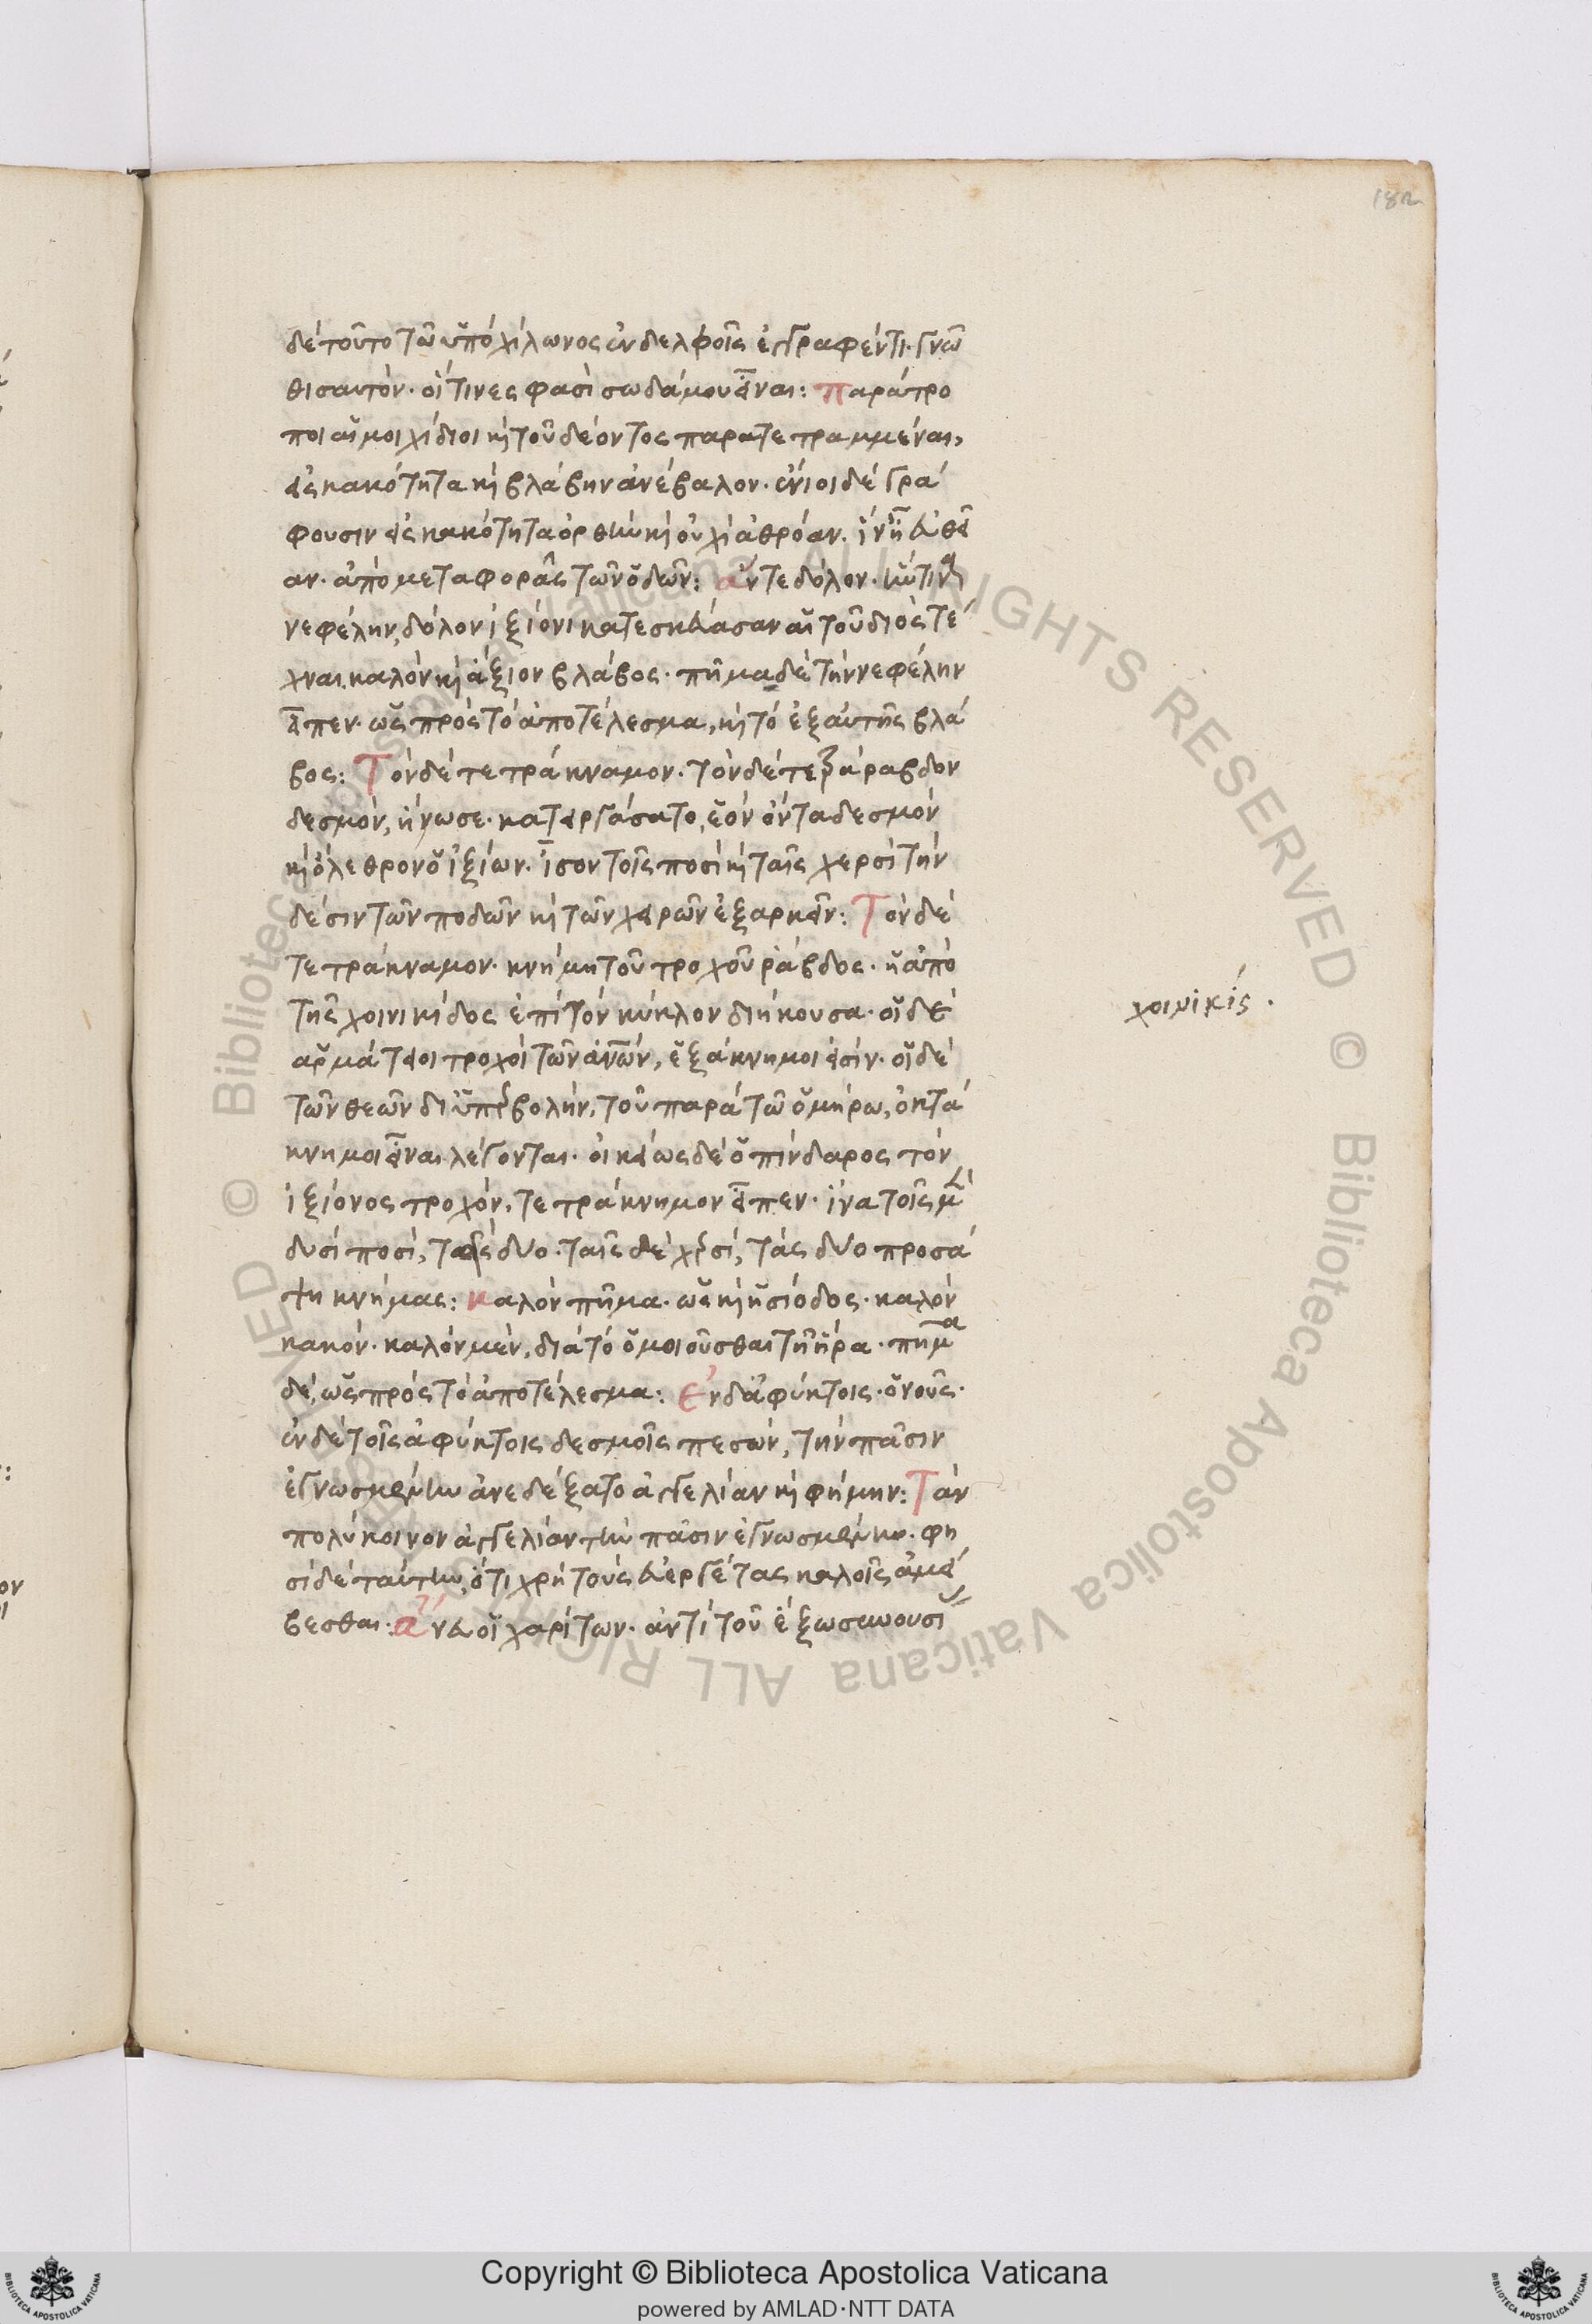 182
δὲ τοῦτο τῶ ὑπὸ χίλωνος ἐν δελφοῖς ἐγγραφέντι· γνῶ
θι σαυτόν· οἵ τινες φασὶ σωδάμου εἶναι: παράτρο
ποι αἱ μοιχίδιοι καὶ τοῦ δέοντος παρατετραμμέναι,
εἰς κακότητα καὶ βλάβην ἀνέβαλον· ἔνιοι δὲ γρά
φουσιν εἰς κακότητα ὀρθὴν καὶ οὐχὶ ἀθρόαν. ἵν' ἦ εὐθεῖ
αν· ἀπὸ μεταφορᾶς τῶν ὁδῶν: ἅν τε δόλον· ἥν τινα
νεφέλην, δόλον ἰξίονι κατεσκεύασαν αἱ τοῦ διὸς τέ
χναι καλὸν καὶ ἄξιον βλάβος· πῆμα δὲ τὴν νεφέλην
εἶπεν· ὡς πρὸς τὸ ἀποτέλεσμα, καὶ τὸ ἐξ αὐτῆς βλά
βος: Τὸν δὲ τετράκναμον· τὸν δὲ τετράραβδον
δεσμόν, ἥνωσε· κατειργάσατο, ἑὸν ὄντα δεσμὸν
καὶ ὄλεθρον ὁ ἰξίων· ἴσον τοῖς ποσὶ καὶ ταῖς χερσὶ τὴν
δέσιν τῶν ποδῶν καὶ τῶν χειρῶν ἐξαρκεῖν: Τὸν δὲ
τετράκναμον· κνήμη τοῦ τροχοῦ ῥάβδος· ἡ ἀπὸ
τῆς χοινικίδος ἐπὶ τὸν κύκλον διήκουσα· οἱ δὲ
ἁρμάτειοι τροχοὶ τῶν ἀνων, ἑξάκνημοι εἰσίν· οἱ δὲ
τῶν θεῶν δι' ὑπερβολήν, τοῦ παρὰ τῶ ὁμήρω, ὀκτά
κνημοι εἶναι λέγονται· οἰκείως δὲ ὁ πίνδαρος τὸν
ἰξίονος τροχόν, τετράκνημον εἶπεν· ἵνα τοῖς μὲν
δυσὶ ποσί, τὰς δύο· ταῖς δὲ χερσί, τὰς δύο προσά
ψη κνήμας: καλὸν πῆμα· ὡς καὶ ἡσίοδος· καλὸν
κακόν· καλὸν μέν, διὰ τὸ ὁμοιοῦσθαι τῆ ἥρα· πῆμα
δέ, ὡς πρὸς τὸ ἀποτέλεσμα: ἐν δ' ἀφύκτοις· ὁ νοῦς·
ἐν δὲ τοῖς ἀφύκτοις δεσμοῖς πεσών, τὴν πᾶσιν
ἐγνωσμένην ἀνεδέξατο ἀγγελίαν καὶ φήμην: Τὰν
πολύκοινον ἀγγελίαν τὴν πᾶσιν ἐγνωσμένην· φη
σὶ δὲ ταύτην, ὅτι χρὴ τοὺς εὐεργέτας καλοῖς ἀμεί
βεσθαι: ἄνευ οἱ χαρίτων· ἀντὶ τοῦ ἔξω συνουσί
χοινικίς.
Copyright © Biblioteca Apostolica Vaticana
powered by AMLAD·NTT DATA